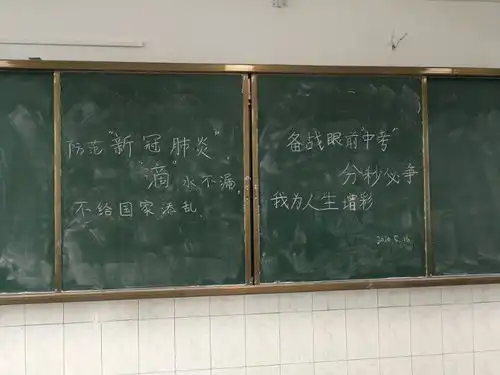 防范"新冠肺炎",
"滴"水不漏,
不给国家添乱.
备战眼前"中考"
分秒必争
我为人生增彩